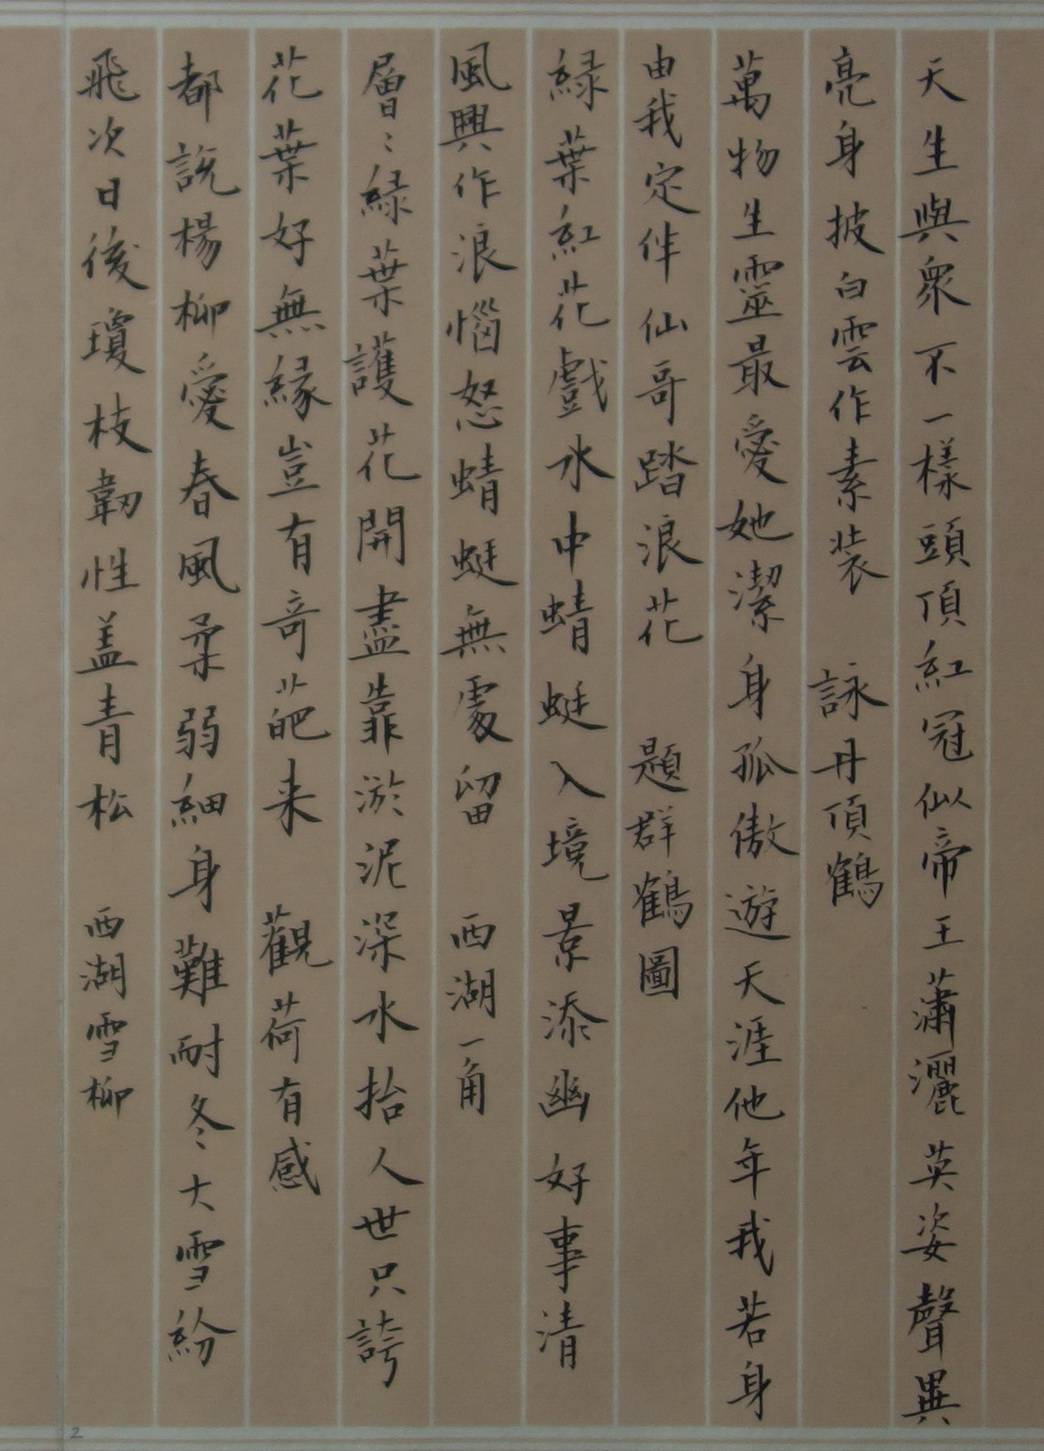 天生與衆不一樣頭頂紅冠似帝王蕭灑英姿聲異
亮身披白雲作素裝 詠丹頂鶴
萬物生靈最愛她潔身孤傲遊天涯他年我若身
由我定伴仙哥踏浪花 題群鶴圖
綠葉紅花戲水中蜻蜓入境景添幽好事清
風興作浪惱怒蜻蜓無處留 西湖一角
層層綠葉護花開盡靠淤泥深水抬人世只誇
花葉好無緣豈有奇葩来 觀荷有感
都説楊柳愛春風柔弱細身難耐冬大雪紛
飛次日後瓊枝韌性盖青松 西湖雪柳
2